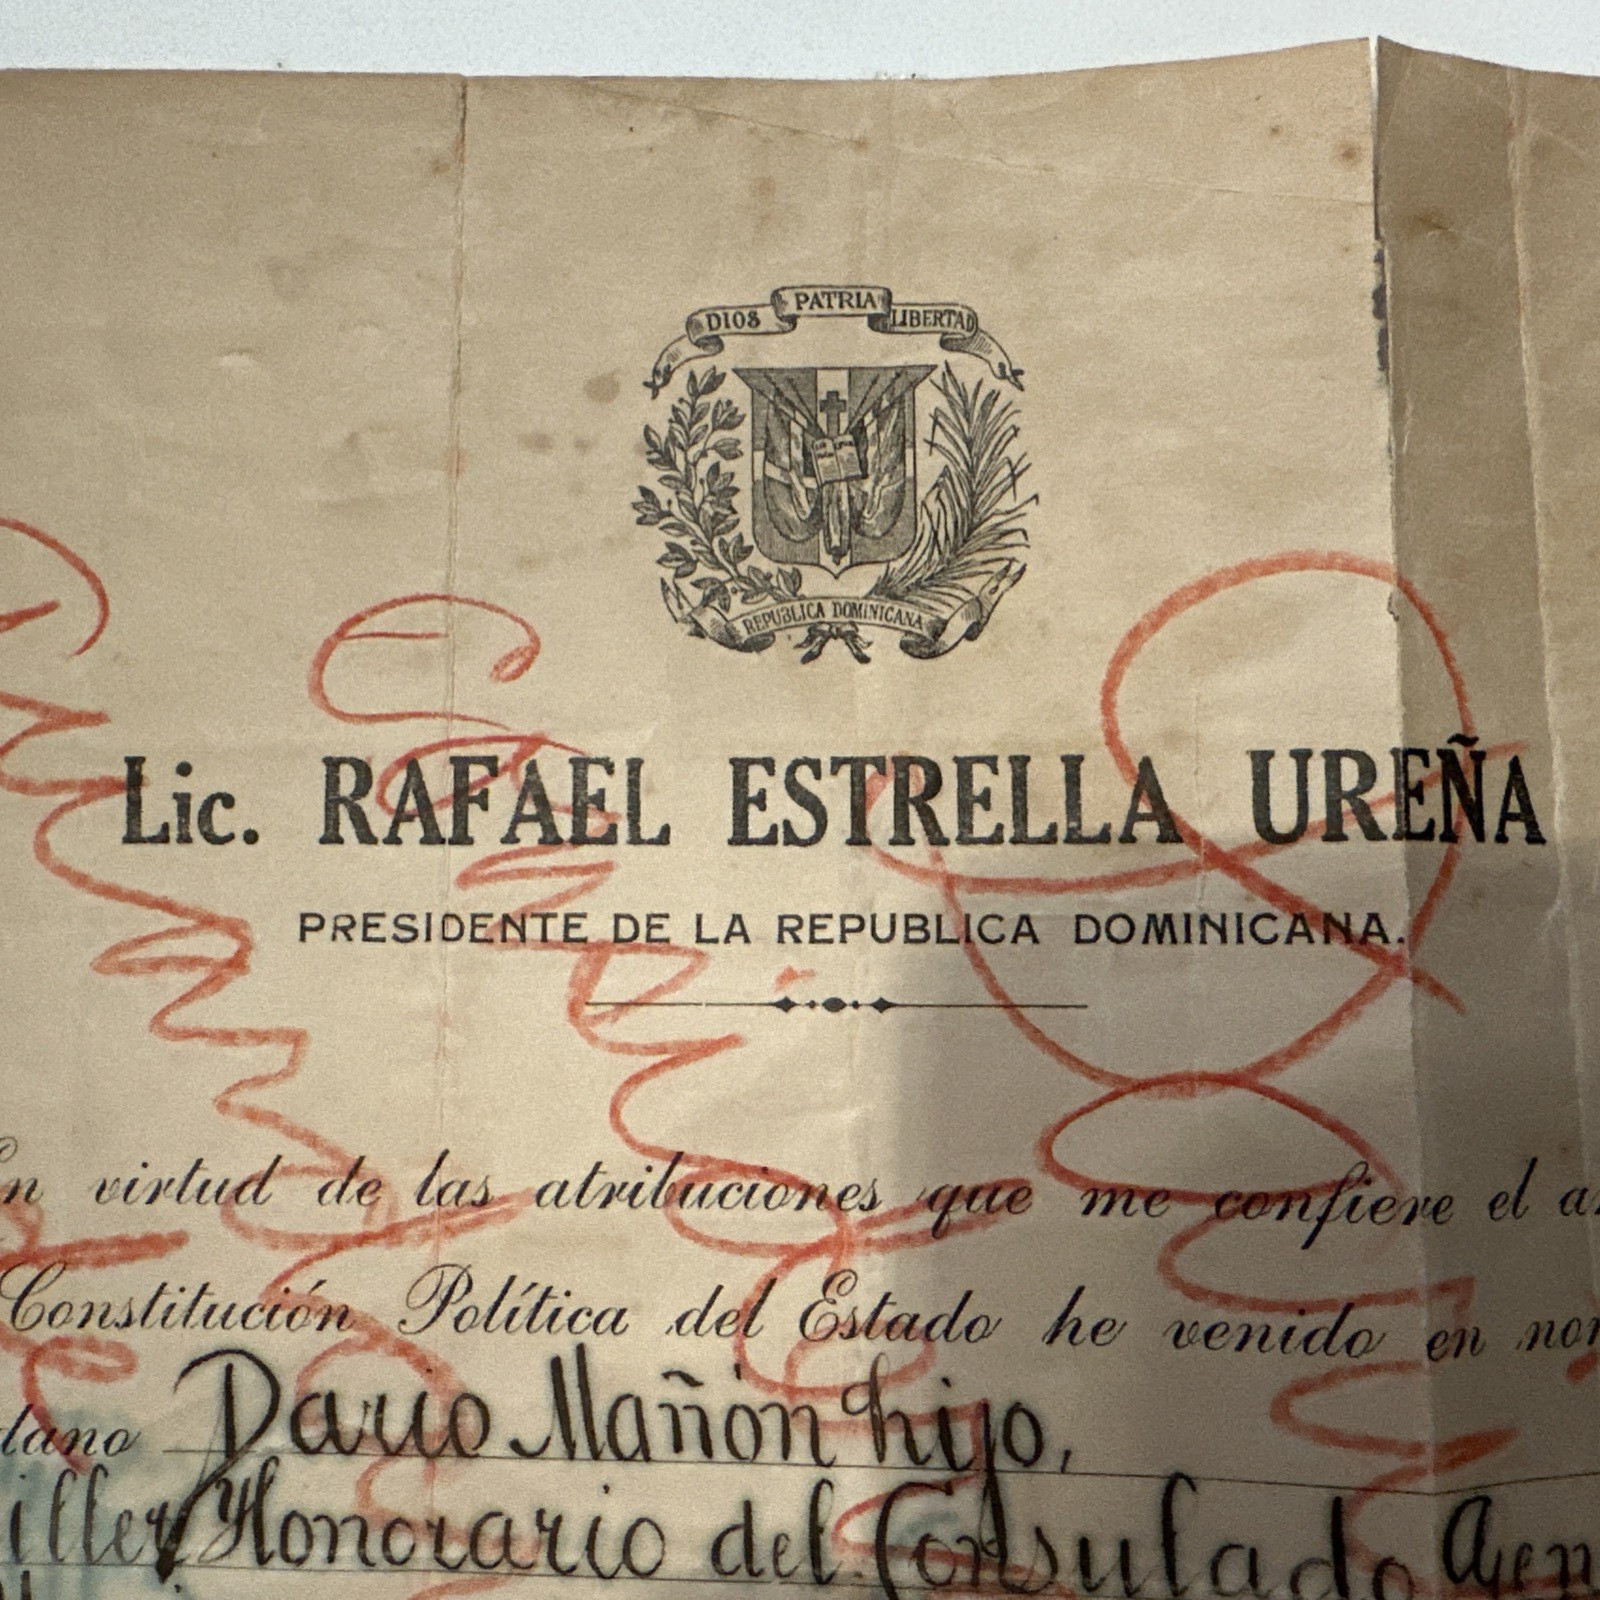 DIOS PATRIA LIBERTAD
REPUBLICA DOMINICANA
Lic. RAFAEL ESTRELLA UREÑA
PRESIDENTE DE LA REPUBLICA DOMINICANA.
En virtud de las atribuciones que me confiere el
Constitución Política del Estado he venido en
Dario Mañón hijo,
Honorario del Consulado